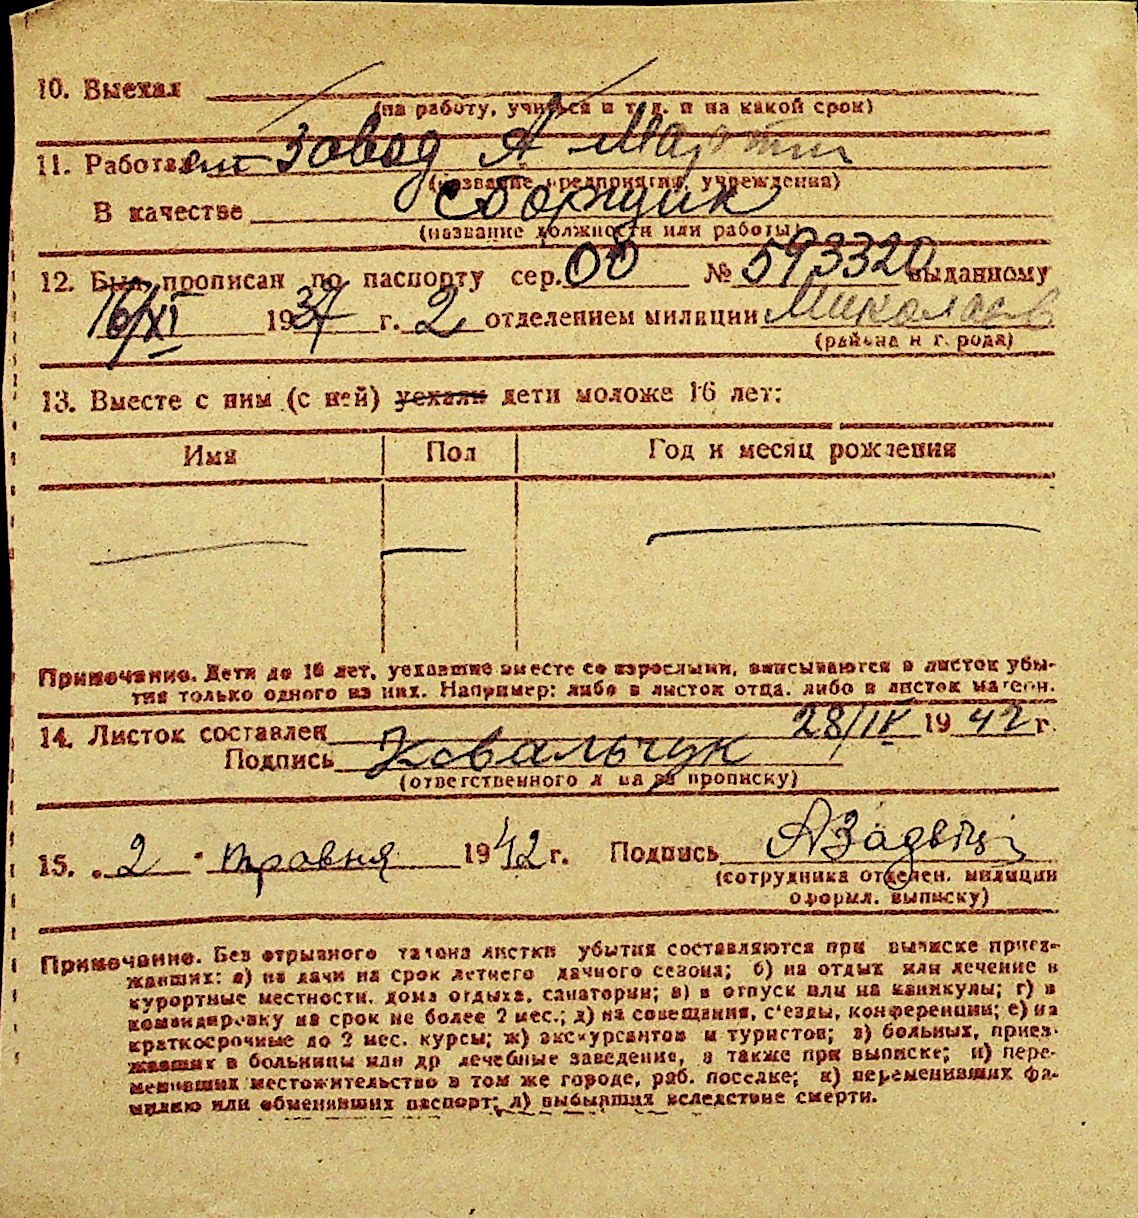 10. Выехал
(на работу, учиться и т. д. и на какой срок)
11. Работает завод А Марти
(название предприятия, учреждения)
В качестве сборщик
(название должности или работы)
12. Был прописан по паспорту сер. ОО № 593320 выданному
16/XI 1937 г. 2 отделением милиции Миколаев
(района и города)
13. Вместе с ним (с ней) уехали дети моложе 16 лет:
Имя Пол Год и месяц рождения
Примечание. Дети до 16 лет, уехавшие вместе со взрослыми, вписываются в листок убы-
тия только одного из них. Например: либо в листок отца, либо в листок матери.
14. Листок составлен 28/IV 1942 г.
Подпись Ковальчук
(ответственного л на за прописку)
15. „2 " травня 1942 г. Подпись
(сотрудника отделен. милиции
оформл. выписку)
Примечание. Без отрывного талона листки убытия составляются при выписке приез-
жавших: а) на дачи на срок летнего дачного сезона; б) на отдых или лечение в
курортные местности, дома отдыха, санатории; в) в отпуск или на каникулы; г) в
командировку на срок не более 2 мес.; д) на совещания, с'езды, конференции; е) на
краткосрочные до 2 мес. курсы; ж) экскурсантов и туристов; з) больных, приез-
жавших в больницы или др лечебные заведение, а также при выписке; и) пере-
менивших местожительство в том же городе, раб. поселке; к) переменивших фа-
милию или обменявших паспорт; л) выбывших вследствие смерти.